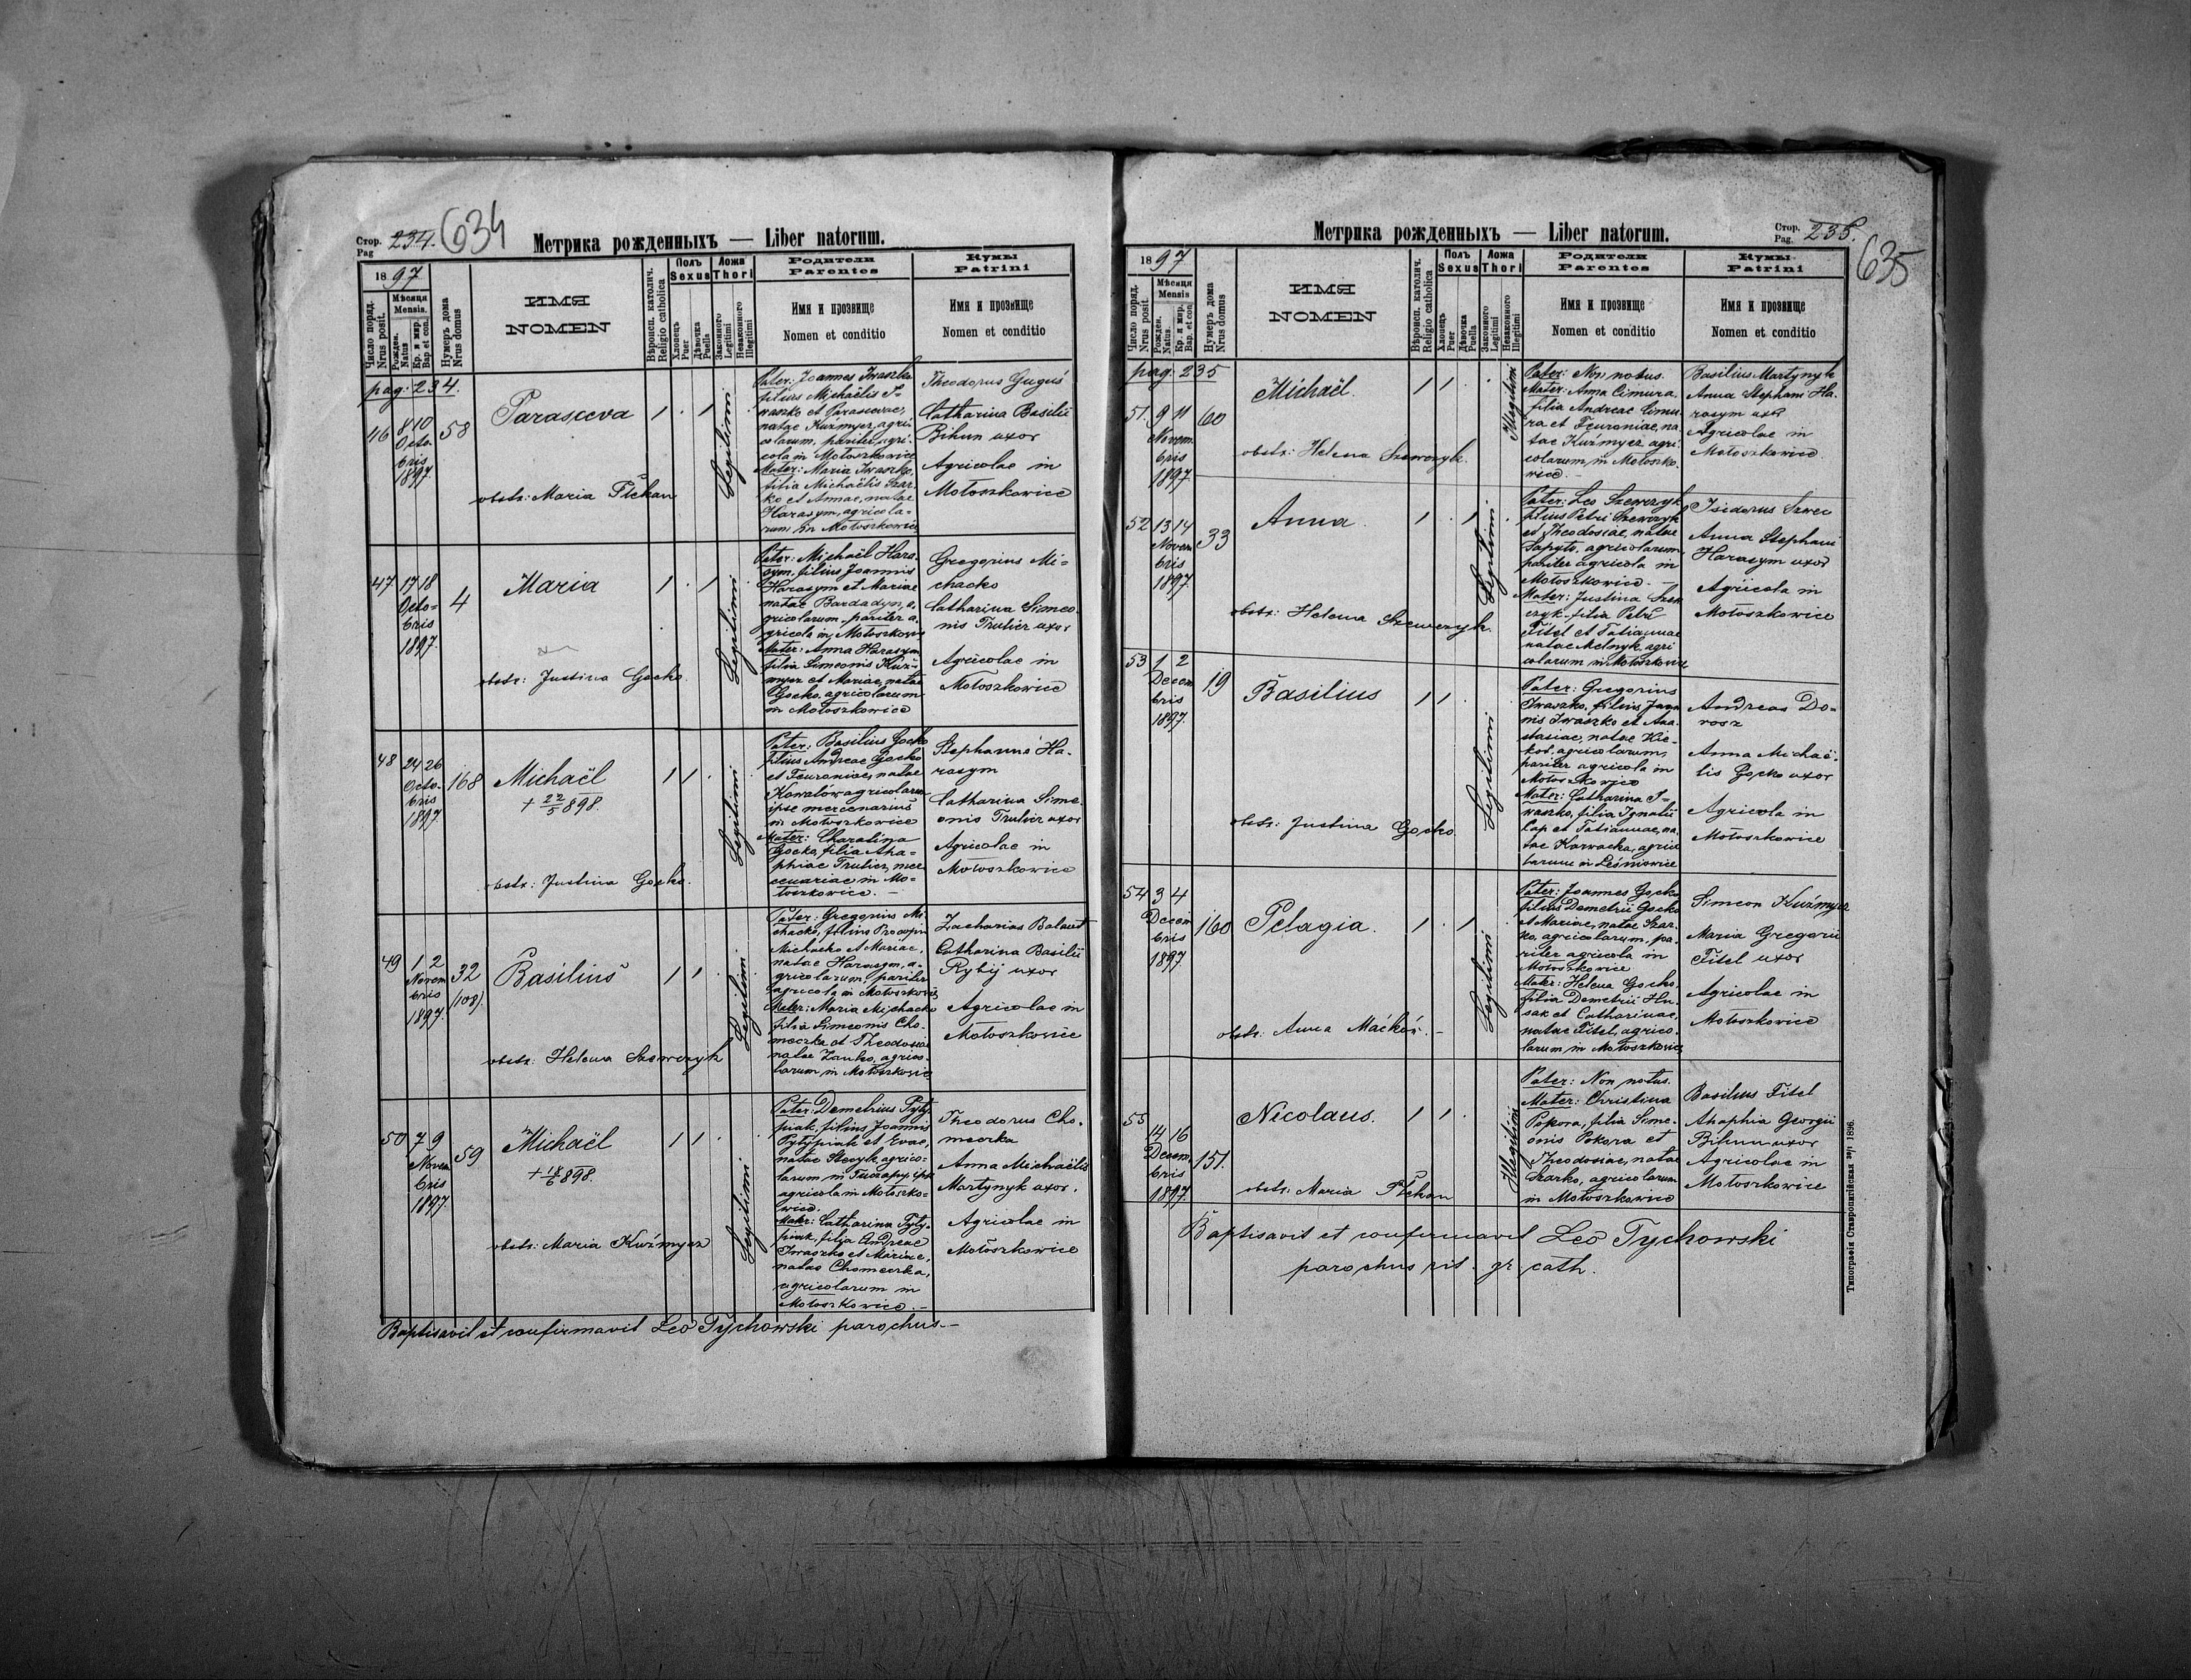 Стор. Pag 234. 634
Метрика рожденныхъ — Liber natorum.
1897
Число поряд. Nrus posit.
Мѣсяця Mensis.
Рожден. Natus
Кр. и мир. Bap. et con.
Нумеръ дома Nrus domus
ИМЯ
NOMEN
Вѣроисп. католич. Religio catholica
Полъ Sexus
Хлопецъ Puer
Дѣвочка Puella
Ложа Thori
Законного Legitimi
Незаконного Illegitimi
Родители
Parentes
Имя и прозвище
Nomen et conditio
Кумы
Patrini
Имя и прозвище
Nomen et conditio
pag. 234.
46 8 10 Octobris 1897 58
Parasceva 1 . 1 Legitimi
obstr: Maria Płekan
Pater: Joannes Iwaszko
filius Michaëlis I-
waszko et Parascevae,
natae Kuźmycz, agri-
colarum, pariter agri-
cola in Mołoszkowice
Mater: Maria Iwaszko,
filia Michaëlis Szar-
ko et Annae, natae
Harasym, agricola-
rum in Mołoszkowice
Theodorus Guguś
Catharina Basilii
Bihun uxor
Agricolae in
Mołoszkowice
47 17 18 Octobris 1897 4
Maria 1 . 1 Legitimi
obstr: Justina Gocko
Pater: Michaël Hara-
sym, filius Joannis
Harasym et Mariae
natae Bardadyn, a-
gricolarum, pariter a-
gricola in Mołoszkowice
Mater: Anna Harasym
filia Simeonis Kuź-
mycz et Mariae, natae
Gocko, agricolarum
in Mołoszkowice
Gregorius Mi-
chacko
Catharina Simeo-
nis Trulicz uxor
Agricolae in
Mołoszkowice
48 24 26 Octobris 1897 168
Michaël 1 1 . Legitimi
+ 22/5 898.
obstr: Justina Gocko.
Pater: Basilius Gocko
filius Andreae Gocko
et Feuroniae, natae
Kowalów agricolarum
ipse mercenarius
in Mołoszkowice
Mater: Charatina
Gocko, filia Aha-
phiae Trulicz, mer-
cenariae in Mo-
łoszkowice. —
Stephanus Ha-
rasym
Catharina Sime-
onis Trulicz uxor
Agricolae in
Mołoszkowice
49 1 2 Novembris 1897. 32 (108).
Basilius 1 1 . Legitimi
obstr: Helena Szewczyk
Pater: Gregorius Mi-
chacko, filius Procopii
Michacko et Mariae,
natae Harasym, a-
gricolarum, pariter
agricola in Mołoszkowice
Mater: Maria Michacko
filia Simeonis Cho-
meczka et Theodosiae
natae Zanko, agrico-
larum in Mołoszkowice
Zacharias Balaut
Catharina Basilii
Rybij uxor
Agricolae in
Mołoszkowice
50 7 9 Novembris 1897. 59
Michaël 1 1 . Legitimi
+ 18/6 898.
obstr: Maria Kuźmycz
Pater: Demetrius Pyty-
piak, filius Joannis
Pytypiak et Evae,
natae Stecyk, agrico-
larum in Tuczapy, ipse
agricola in Mołoszko-
wice.
Mater: Catharina Pyty-
piak, filia Andreae
Iwaszko et Mariae,
natae Chomeczka,
agricolarum in
Mołoszkowice. —
Theodorus Cho-
meczka
Anna Michaëlis
Martynyk uxor.
Agricolae in
Mołoszkowice
Baptisavit et confirmavit Leo Tychowski parochus —
Метрика рожденныхъ — Liber natorum.
Стор. Pag. 235. 635
1897
Число поряд. Nrus posit.
Мѣсяця Mensis
Рожден. Natus.
Кр. и мир. Bap. et con.
Нумеръ дома Nrus domus
ИМЯ
NOMEN
Вѣроисп. католич. Religio catholica
Полъ Sexus
Хлопецъ Puer
Дѣвочка Puella
Ложа Thori
Законного Legitimi
Незаконного Illegitimi
Родители
Parentes
Имя и прозвище
Nomen et conditio
Кумы
Patrini
Имя и прозвище
Nomen et conditio
pag. 235
51. 9 11 Novembris 1897. 60
Michaël. 1 1 . Illegitimi
obstr: Helena Szewczyk.
Pater: Non notus.
Mater: Anna Cimura,
filia Andreae Cimu-
ra et Feuroniae, na-
tae Kuźmycz agri-
colarum in Mołoszko-
wice. —
Basilius Martynyk
Anna Stephani Ha-
rasym uxor
Agricolae in
Mołoszkowice.
52 13 14 Novembris 1897. 33
Anna. 1 . 1 Legitimi
obstr: Helena Szewczyk.
Pater: Leo Szewczyk
filius Petri Szewczyk
et Theodosiae, natae
Sapyto, agricolarum
pariter agricola in
Mołoszkowice. —
Mater: Justina Szew-
czyk, filia Petri
Titel et Tatiannae
natae Melnyk, agri-
colarum in Mołoszkowice
Isidorus Szwec
Anna Stephani
Harasym uxor
Agricola in
Mołoszkowice
53 1 2 Decembris 1897. 19
Basilius 1 1 Legitimi
obstr: Justina Gocko.
Pater: Gregorius
Iwaszko, filius Joan-
nis Iwaszko et Ana-
stasiae, natae
agricolarum,
pariter agricola in
Mołoszkowice
Mater: Catharina I-
waszko, filia Ignatii
Cap et Tatiannae, na-
tae Karwacka, agrico-
larum in Leśniowice
Andreas Do-
rosz
Anna Michaë-
lis Gocko uxor
Agricola in
Mołoszkowice
54 3 4 Decembris 1897. 160
Pelagia. 1 . 1 Legitimi
obstr: Anna Maćków. —
Pater: Joannes Gocko
filius Demetrii Gocko
et Mariae, natae Szar-
ko, agricolarum, pa-
riter agricola in
Mołoszkowice
Mater: Helena Gocko,
filia Demetrii Hu-
sak et Catharinae,
natae Titel, agrico-
larum in Mołoszkowice
Simeon Kuźmycz
Maria Gregorii
Titel uxor
Agricolae in
Mołoszkowice
55 14 16 Decembris 1897. 151.
Nicolaus. 1 1 . Illegitimi
obstr: Maria Płekan
Pater: Non notus.
Mater: Christina
Pokora, filia Sime-
onis Pokora et
Theodosiae, natae
Szarko, agricolarum
in Mołoszkowice
Basilius Titel
Ahaphia Georgii
Bihun uxor
Agricolae in
Mołoszkowice
Baptisavit et confirmavit Leo Tychowski
parochus rit. gr. cath.
Типографія Ставропигійская 1896.